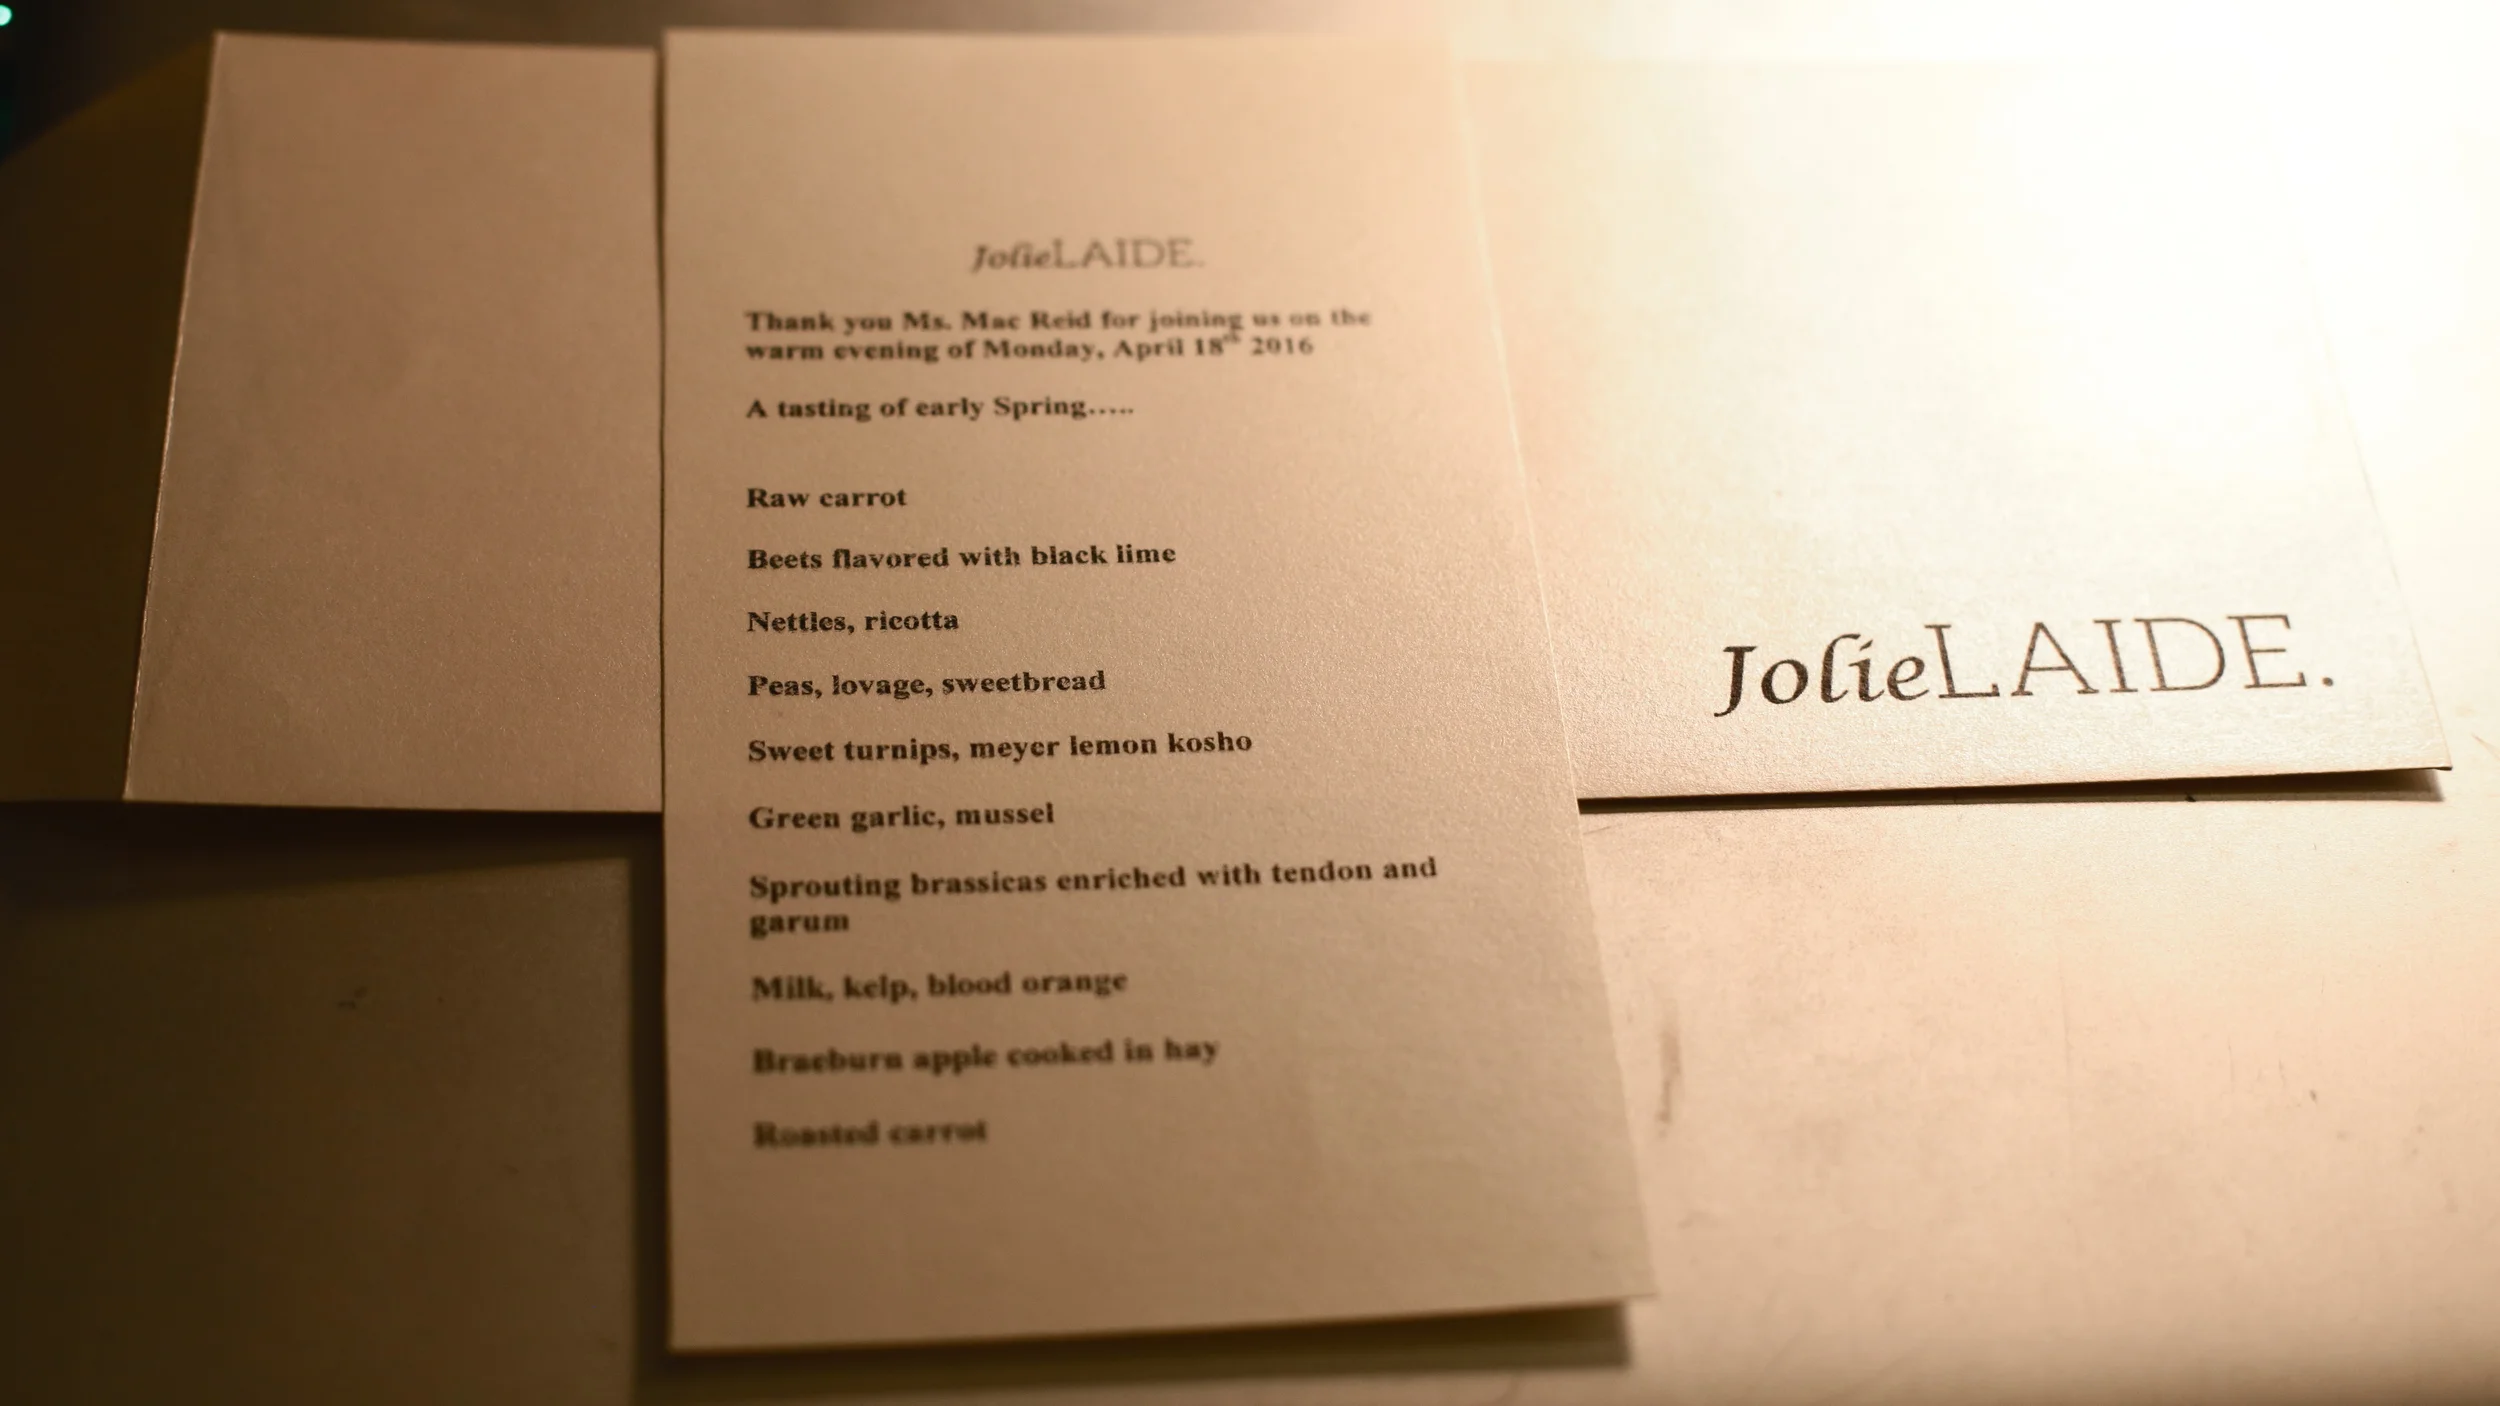 JolieLAIDE.
Thank you Ms. Mac Reid for joining us on the
warm evening of Monday, April 18th 2016
A tasting of early Spring.....
Raw carrot
Beets flavored with black lime
Nettles, ricotta
Peas, lovage, sweetbread
Sweet turnips, meyer lemon kosho
Green garlic, mussel
Sprouting brassicas enriched with tendon and
garum
Milk, kelp, blood orange
Braeburn apple cooked in hay
Roasted carrot
JolieLAIDE.